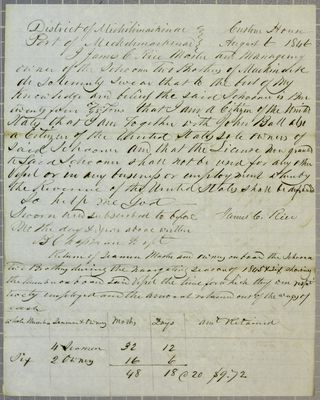 District of Michilimackinac } Custom House
Port of Michilimackinac } August 1846
I James C. Rice Master and Managing
owner of the Schooner two Brothers of Mackinac
do solemnly Swear that to the best of my
knowledge and belief the said Schooner is
twenty Tons that I am a Citizen of the United
States that I am together with John Ball also
a Citizen of the United States sole owners of
said Schooner and that the License now granted
to said Schooner shall not be used for any other
Vessel or in any business or employment whereby
the Revenue of the United States shall be defrauded
So help me God
Sworn and subscribed to before James C. Rice
me the day & year above written
Chapman
Return of Seamen Masters and owners onboard the Schooner
two Brothers during the navigation season of showing
the number onboard said Vessel the time for which they were
employed and the amount retained out of the wages of
each
Seamen & Owners Months Days amt Retained
4 Seamen 32 12
Six 2 Owners 16 6
48 18 @ 20 $9.72